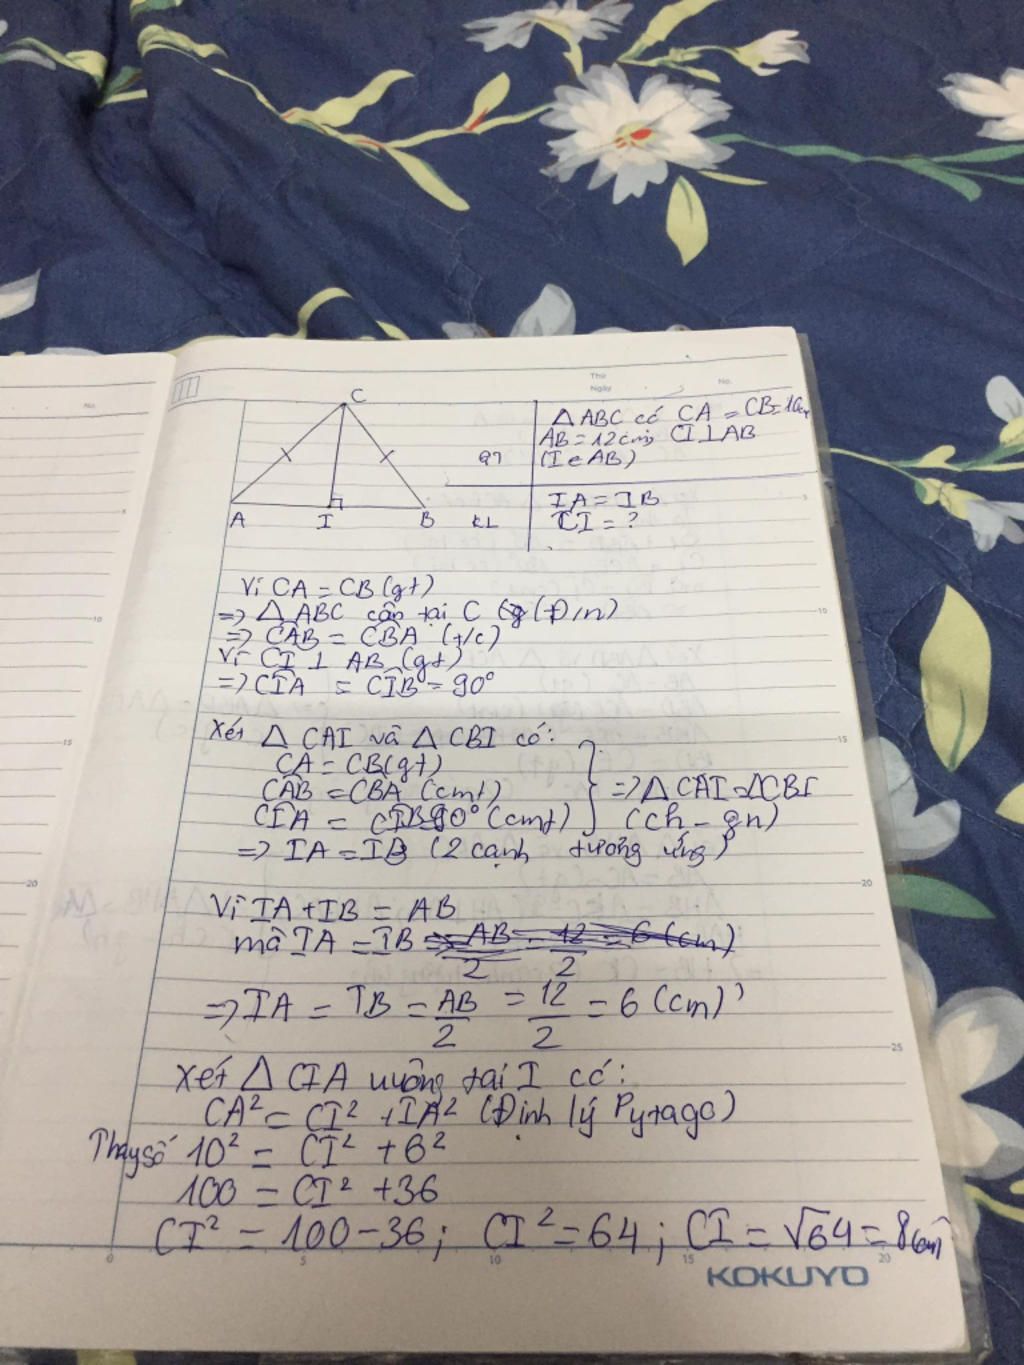 Thứ
Ngày
No.
No.
C
A
I
B
GT
△ABC có CA = CB = 10cm
AB = 12cm; CI⊥AB
(I ∈ AB)
KL
IA = IB
CI = ?
Vì CA = CB (gt)
=> △ABC cân tại C (Đ/n)
=> CÂB = CB̂A (t/c)
Vì CI ⊥ AB (gt)
=> CÎA = CÎB = 90°
Xét △CAI và △CBI có:
CA = CB (gt)
CÂB = CB̂A (cmt)
CÎA = CÎB = 90° (cmt)
=> △CAI = △CBI
(ch - gn)
=> IA = IB (2 cạnh tương ứng)
Vì IA + IB = AB
mà IA = IB = AB/2 = 12/2 = 6 (cm)
=> IA = IB = AB/2 = 12/2 = 6 (cm)
Xét △CIA vuông tại I có:
CA² = CI² + IA² (Định lý Pytago)
Thay số 10² = CI² + 6²
100 = CI² + 36
CI² = 100 - 36; CI² = 64; CI = √64 = 8cm
5
10
15
20
25
10
20
0
5
10
15
20
KOKUYO